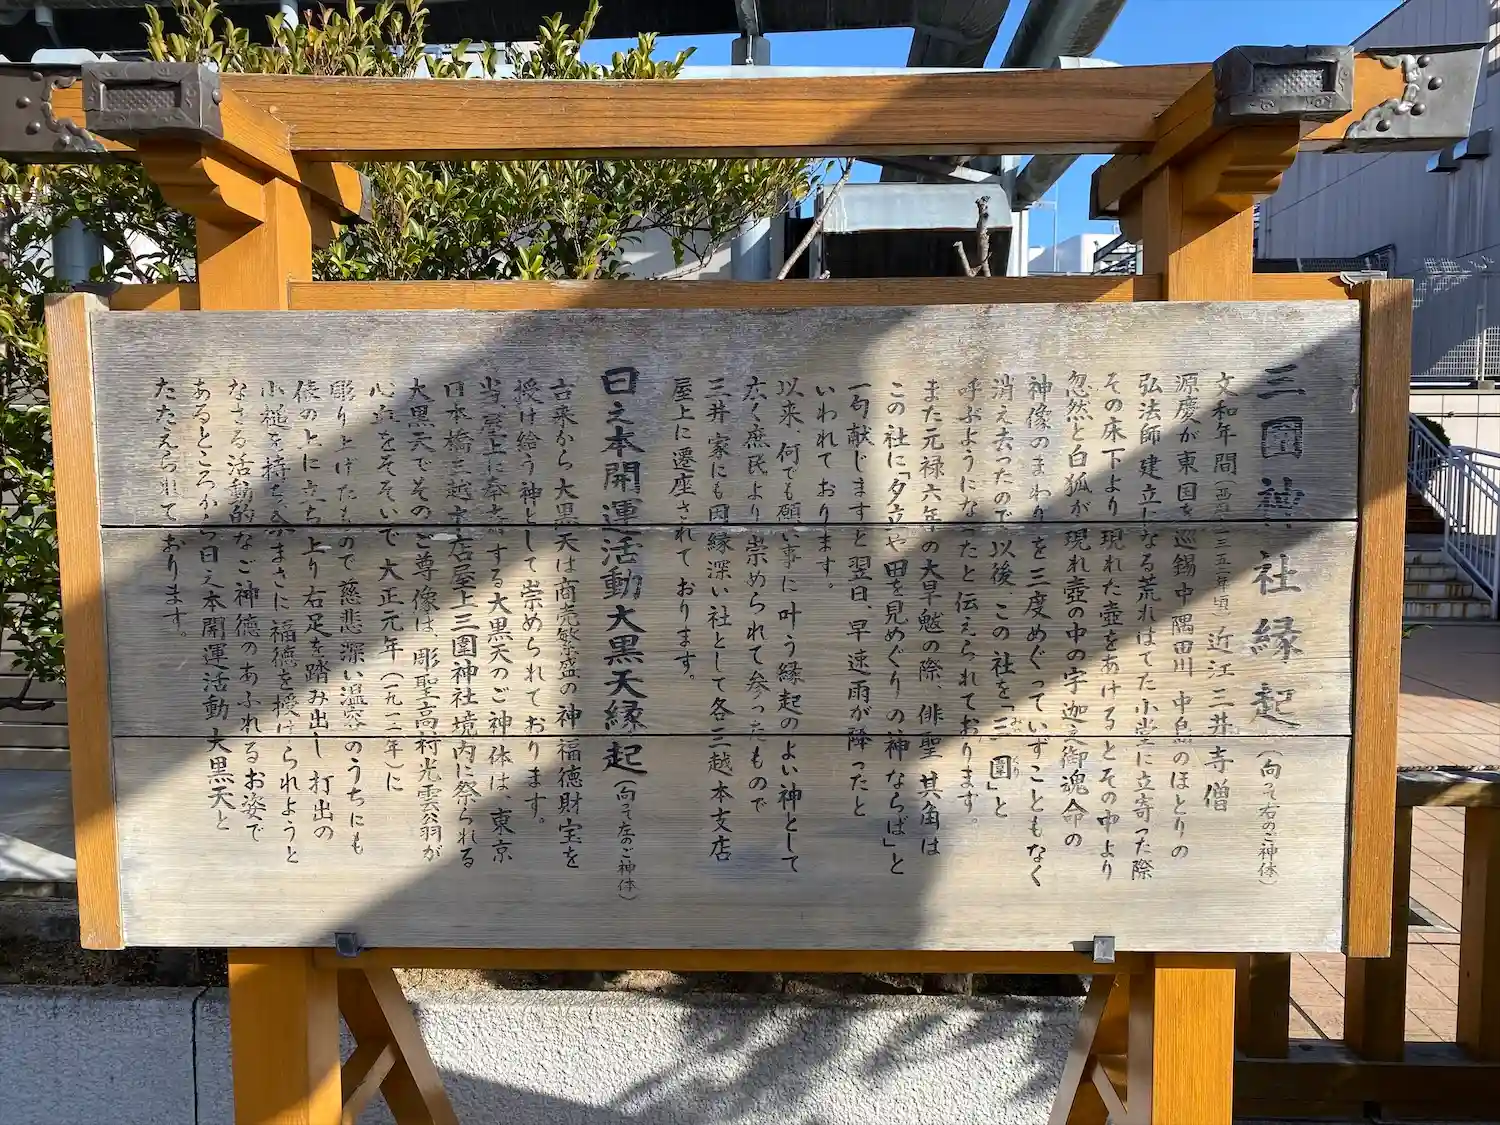 三圍神社縁起(向って右のご神体)
文和年間(西暦一三五二年頃)近江三井寺僧
源慶が東国を巡錫中隅田川 中島のほとりの
弘法師建立になる荒れはてた小堂に立寄った際
その床下より現れた壺をあけるとその中より
忽然と白狐が現れ壺の中の宇迦之御魂命の
神像のまわりを三度めぐっていずこともなく
消え去ったので以後、この社を「三圍」と
みめぐり
呼ぶようになったと伝えられております。
また元禄六年の大旱魃の際、俳聖 其角は
この社に「夕立や田を見めぐりの神ならば」と
一句献じますと翌日、早速雨が降ったと
いわれております。
以来、何でも願い事に叶う縁起のよい神として
広く庶民より崇められて参ったもので
三井家にも因縁深い社として各三越本支店
屋上に遷座されております。
日之本開運活動大黒天縁起(向って左のご神体)
古来から大黒天は商売繁盛の神 福徳財宝を
授け給う神として崇められております。
当屋上に奉斎する大黒天のご神体は、東京
日本橋三越本店屋上三圍神社境内に祭られる
大黒天でそのご尊像は、彫聖高村光雲翁が
心血をそそいで大正元年(一九一二年)に
彫り上げたもので慈悲深い温容のうちにも
俵の上に立ち上り右足を踏み出し 打出の
小槌を持ち今まさに福徳を授けられようと
なさる活動的なご神徳のあふれるお姿で
あるところから日之本開運活動 大黒天と
たたえられております。